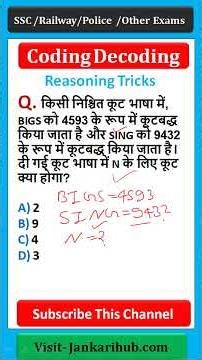 SSC /Railway/Police /Other Exams
Coding Decoding
Reasoning Tricks
Q. किसी निश्चित कूट भाषा में,
BIGS को 4593 के रूप में कूटबद्ध
किया जाता है और SING को 9432
के रूप में कूटबद्ध किया जाता है।
दी गई कूट भाषा में N के लिए कूट
क्या होगा?
A) 2
B) 9
C) 4
D) 3
BIGS=4593
SING=9432
N=2
Subscribe This Channel
Visit-Jankarihub.com